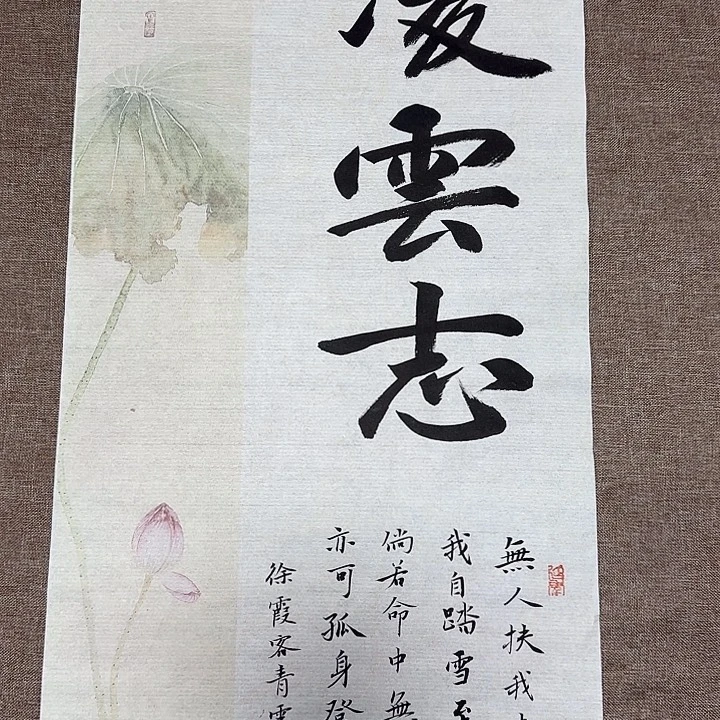 凌雲志
無人扶我
我自踏雪至
倘若命中無
亦可孤身登
徐霞客青雲